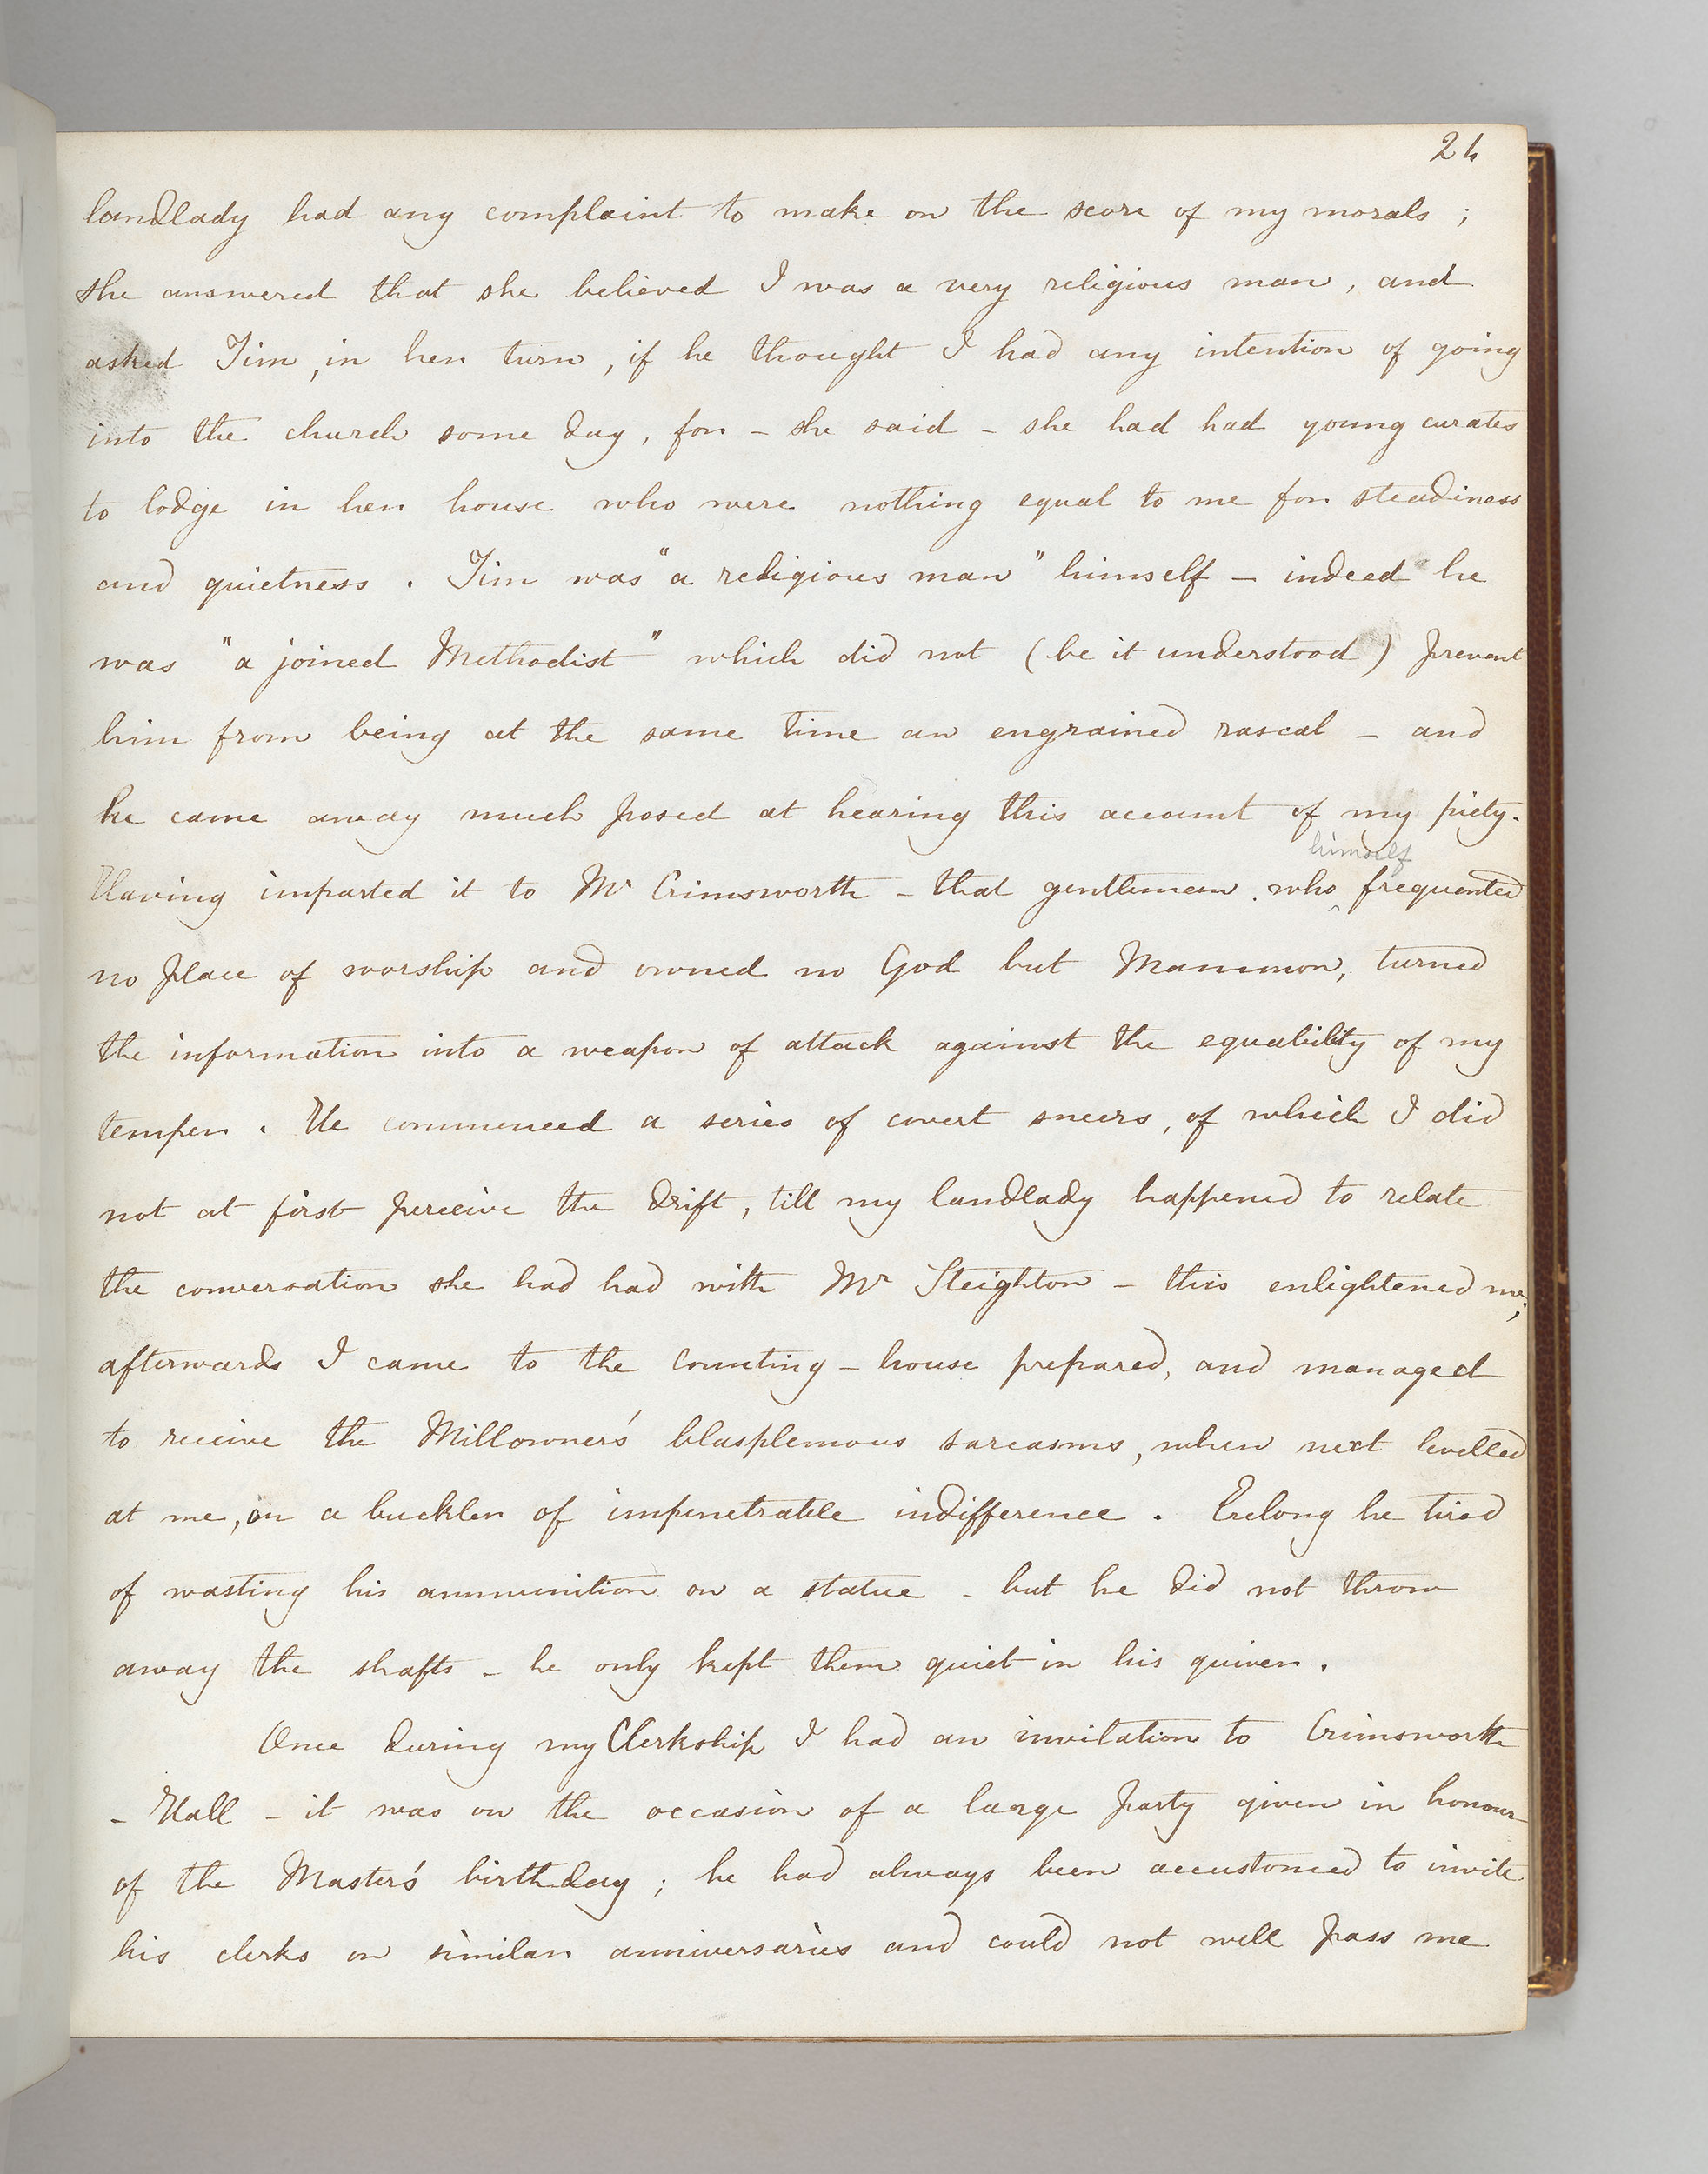 24
landlady had any complaint to make on the score of my morals ;
she answered that she believed I was a very religious man, and
asked Tim, in her turn, if he thought I had any intention of going
into the church some day, for - she said - she had had young curates
to lodge in her house who were nothing equal to me for steadiness
and quietness. Tim was "a religious man" himself - indeed he
was "a joined Methodist" which did not (be it understood) prevent
him from being at the same time an engrained rascal - and
he came away much posed at hearing this account of my piety.
himself
Having imparted it to Mr Crimsworth - that gentleman . who ^ frequented
no place of worship and owned no God but Mammon, turned
the information into a weapon of attack against the equability of my
temper. He commenced a series of covert sneers, of which I did
not at first perceive the drift, till my landlady happened to relate
the conversation she had had with Mr Steighton - this enlightened me;
afterwards I came to the counting-house prepared, and managed
to receive the Millowner's blasphemous sarcasms, when next levelled
at me, on a buckler of impenetrable indifference. Erelong he tired
of wasting his ammunition on a statue - but he did not throw
away the shafts - he only kept them quiet in his quiver.
Once during my Clerkship I had an invitation to Crimsworth
- Hall - it was on the occasion of a large party given in honour
of the Master's birthday ; he had always been accustomed to invite
his clerks on similar anniversaries and could not well pass me